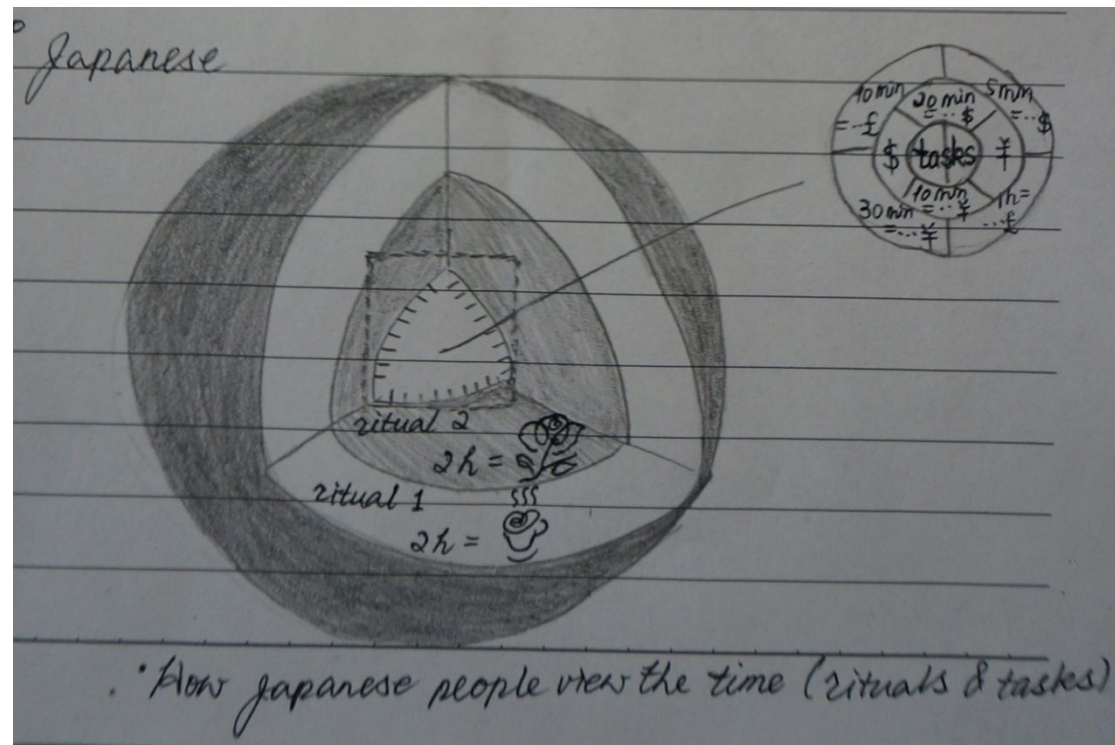 Japanese
10 min
= ... £
20 min
= ... $
5 min
= ... $
$
tasks
¥
30 min
= .... ¥
10 min
= ... ¥
1h =
... £
ritual 2
2h =
ritual 1
2h =
• How japanese people view the time (rituals & tasks)